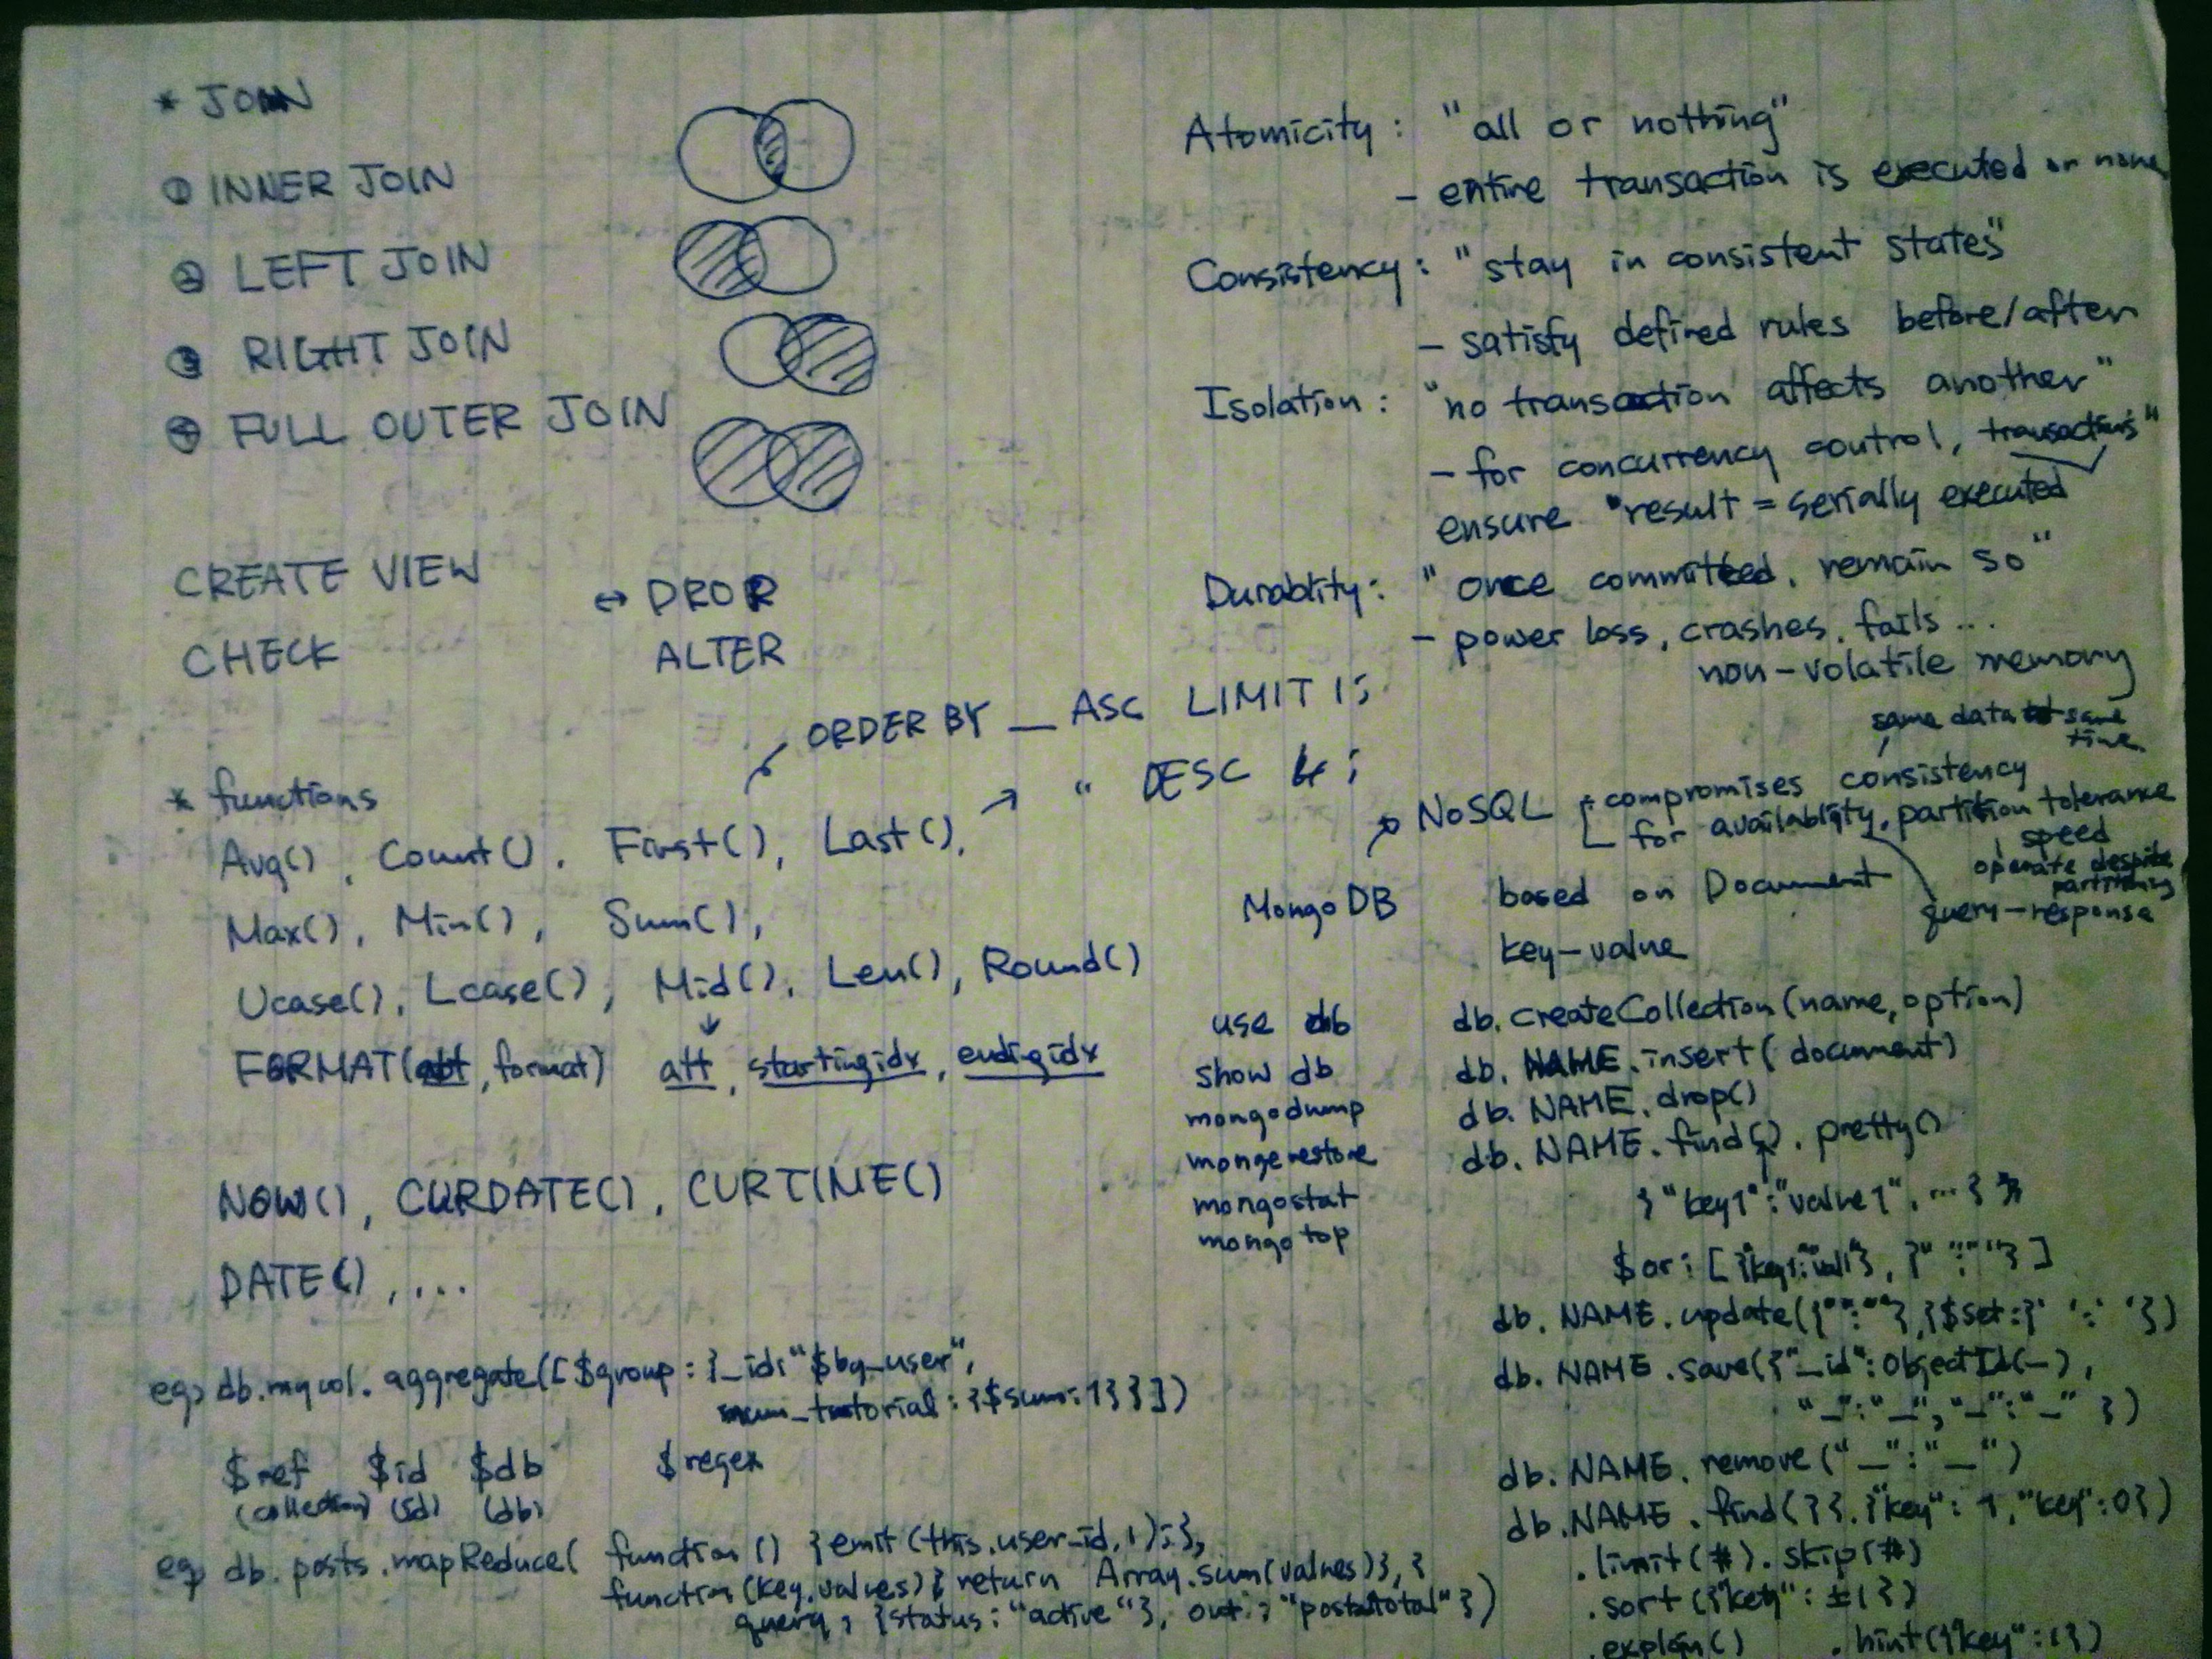 * JOIN
① INNER JOIN
② LEFT JOIN
③ RIGHT JOIN
④ FULL OUTER JOIN
CREATE VIEW ↔ DROP
CHECK ALTER
ORDER BY __ ASC LIMIT 1;
" DESC ;
* functions
Avg(), Count(), First(), Last(),
Max(), Min(), Sum(),
Ucase(), Lcase(), Mid(), Len(), Round()
FORMAT(att, format) att, startingidx, endingidx
NOW(), CURDATE(), CURTIME()
DATE(), ...
eg) db.mycol.aggregate([$group: {_id: "$by_user",
num_tutorial: {$sum: 1}}])
$ref $id $db $regex
(collection) (id) (db)
eg) db.posts.mapReduce( function() {emit(this.user_id, 1);},
function(key, values) { return Array.sum(values)}, {
query: {status: "active"}, out: "post_total" })
Atomicity : "all or nothing"
- entire transaction is executed or none
Consistency : "stay in consistent states"
- satisfy defined rules before/after
Isolation : "no transaction affects another"
- for concurrency control, transactions"
ensure "result = serially executed
Durablity : "once committed, remain so"
- power loss, crashes, fails ...
non-volatile memory
same data same
time
NoSQL compromises consistency
for availability, partition tolerance
speed
operate despite
partitioning
query-response
MongoDB based on Document
key-value
use db
show db
mongodump
mongorestore
mongostat
mongotop
db.createCollection(name, option)
db.NAME.insert( document)
db.NAME.drop()
db.NAME.find().pretty()
{ "key1":"value1", ... }
$or: [ {"key1":"val1"}, {" ":" "} ]
db.NAME.update({" ":" "}, {$set:{' ':' '})
db.NAME.save({"_id": ObjectId(_),
"_":"_", "_":"_" })
db.NAME.remove("_":"_")
db.NAME.find({},{"key": 1, "key":0})
.limit(#).skip(#)
.sort({"key": ±1})
.explain() .hint({"key":1})